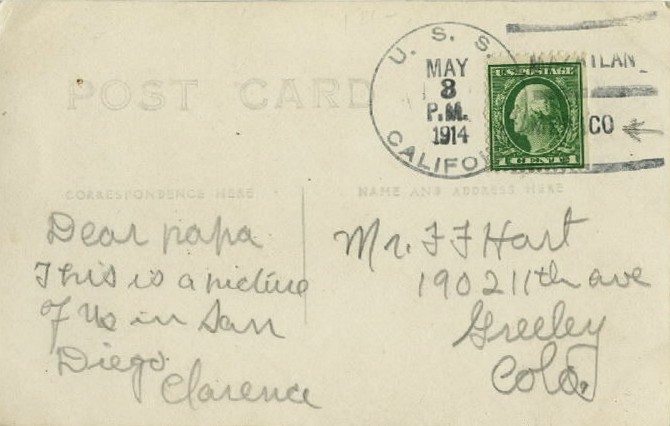 POST CARD
U. S. S.
MAY
8
P.M.
1914
CALIFO
MAZATLAN
CO
U.S. POSTAGE
1 CENT 1
CORRESPONDENCE HERE
NAME AND ADDRESS HERE
Dear papa
This is a picture
of us in San
Diego
Clarence
Mr. F F Hart
1902 11th ave
Greeley
Colo.